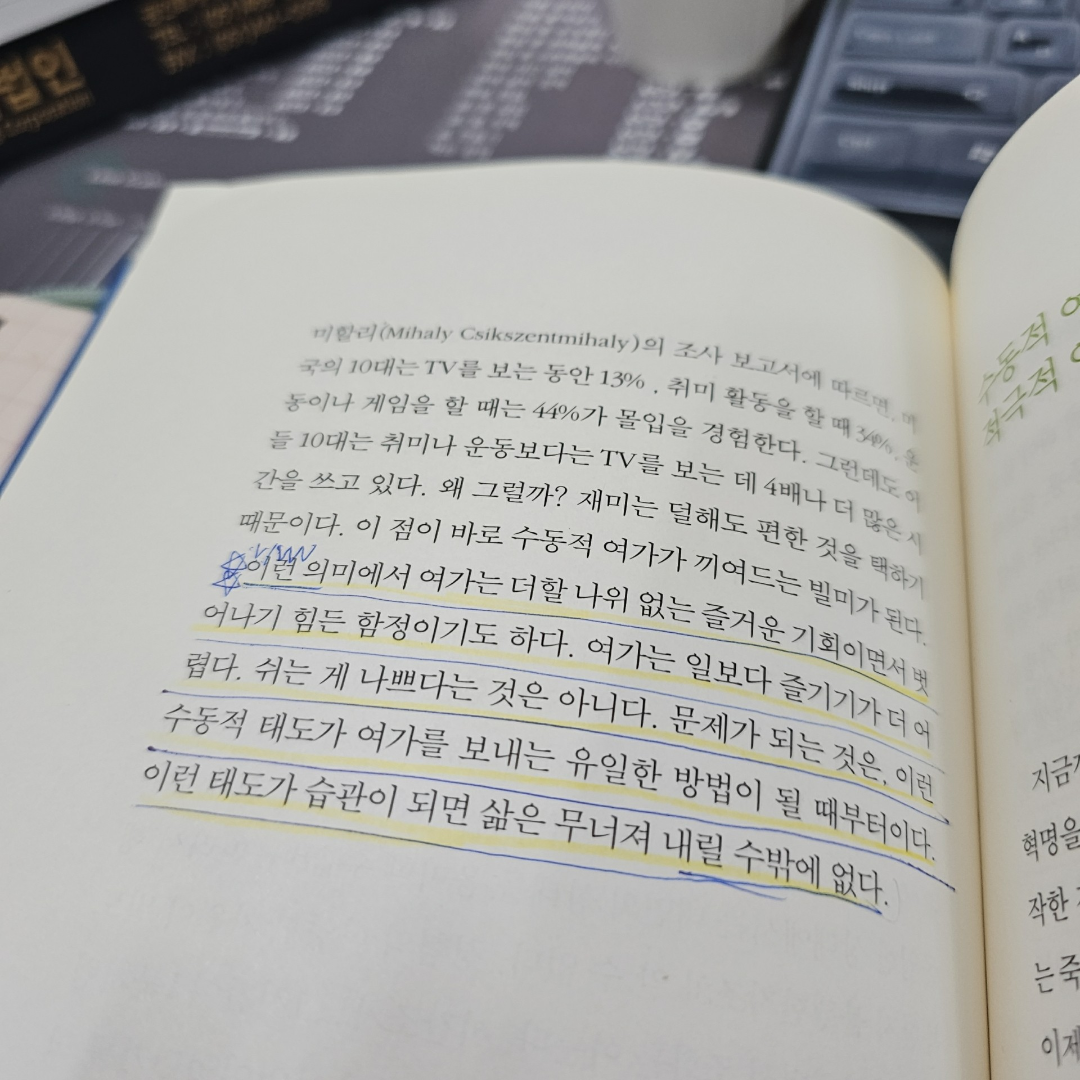 법인
미할리(Mihaly Csikszentmihaly)의 조사 보고서에 따르면, 미
국의 10대는 TV를 보는 동안 13% , 취미 활동을 할 때 34%, 운
동이나 게임을 할 때는 44%가 몰입을 경험한다. 그런데도 이
들 10대는 취미나 운동보다는 TV를 보는 데 4배나 더 많은 시
간을 쓰고 있다. 왜 그럴까? 재미는 덜해도 편한 것을 택하기
때문이다. 이 점이 바로 수동적 여가가 끼여드는 빌미가 된다.
이런 의미에서 여가는 더할 나위 없는 즐거운 기회이면서 벗
어나기 힘든 함정이기도 하다. 여가는 일보다 즐기기가 더 어
렵다. 쉬는 게 나쁘다는 것은 아니다. 문제가 되는 것은, 이런
수동적 태도가 여가를 보내는 유일한 방법이 될 때부터이다.
이런 태도가 습관이 되면 삶은 무너져 내릴 수밖에 없다.
수동적
적극적
혁명을
작한